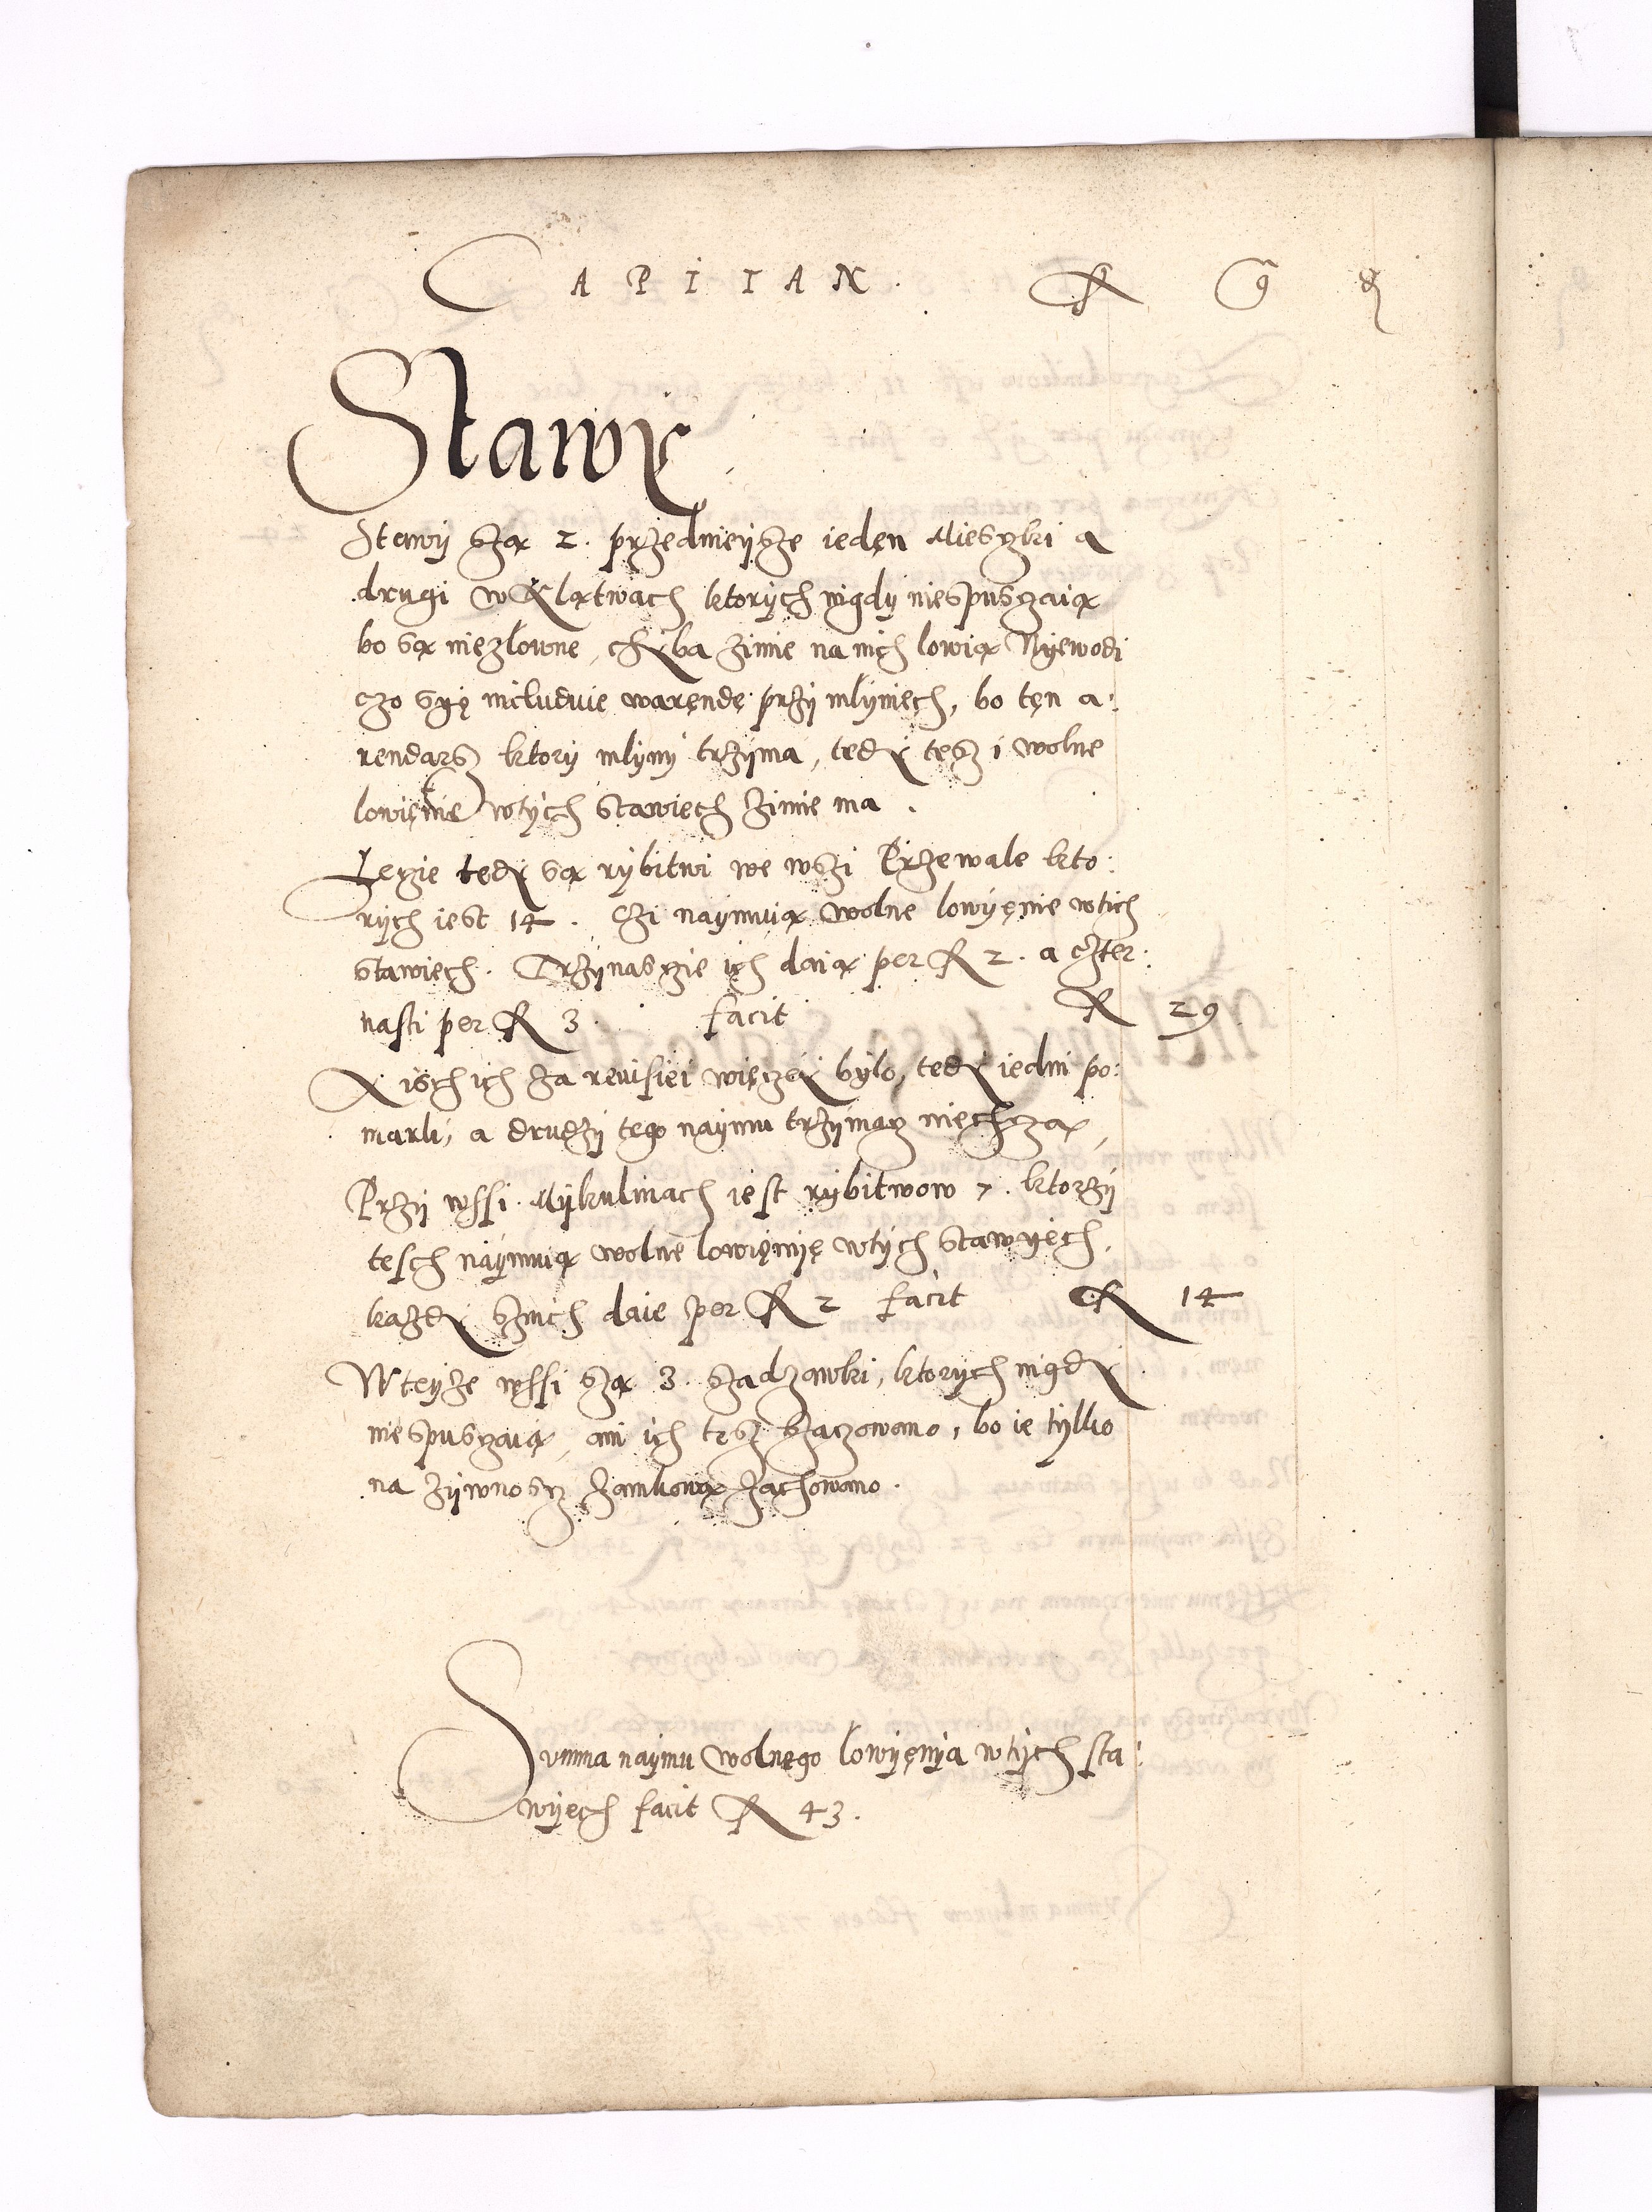 CAPITAN. fl g d
Stawy
Stawy szą 2. przednieysze ieden Mieysczki a
drugi w Klątwach ktorych nigdy niespusczaią
bo są niezłowne, chyba zimie na nich lowią Nyewodi
czo szyę includuie warendę przy mlyniech, bo ten a:
rendarz ktory mlyny trzyma, tedy tesz i wolne
lowienie wtych stawiech zimie ma.
tedy są rybitwi we wszi Przewale kto:
rych iest 14. Czi naymuią wolne lowyęnie wtich
stawiech. Trzynasczie ich daią per fl 2. a czter:
nasti per fl 3. facit fl 29
A isch ich za reuisiei więczey bylo, tedy iedni po:
marli, a drudzy tego naymu trzymacz niechczą,
Przy wssi Mykulinach iest rybitwow 7. ktorzy
tesch naymuią wolne lowięnię wtych stawyech,
kazdy sznich daie per fl 2 facit fl 14
W teyze wssi szą 3. szadzawki, ktorych nigdy
niespusczaią, ani ich tesz szaczowano, bo ie tylko
na zywnoscz zamkową zachowano.
Summa naymu wolnego lowyęnya wtych sta:
wyech facit fl 43.